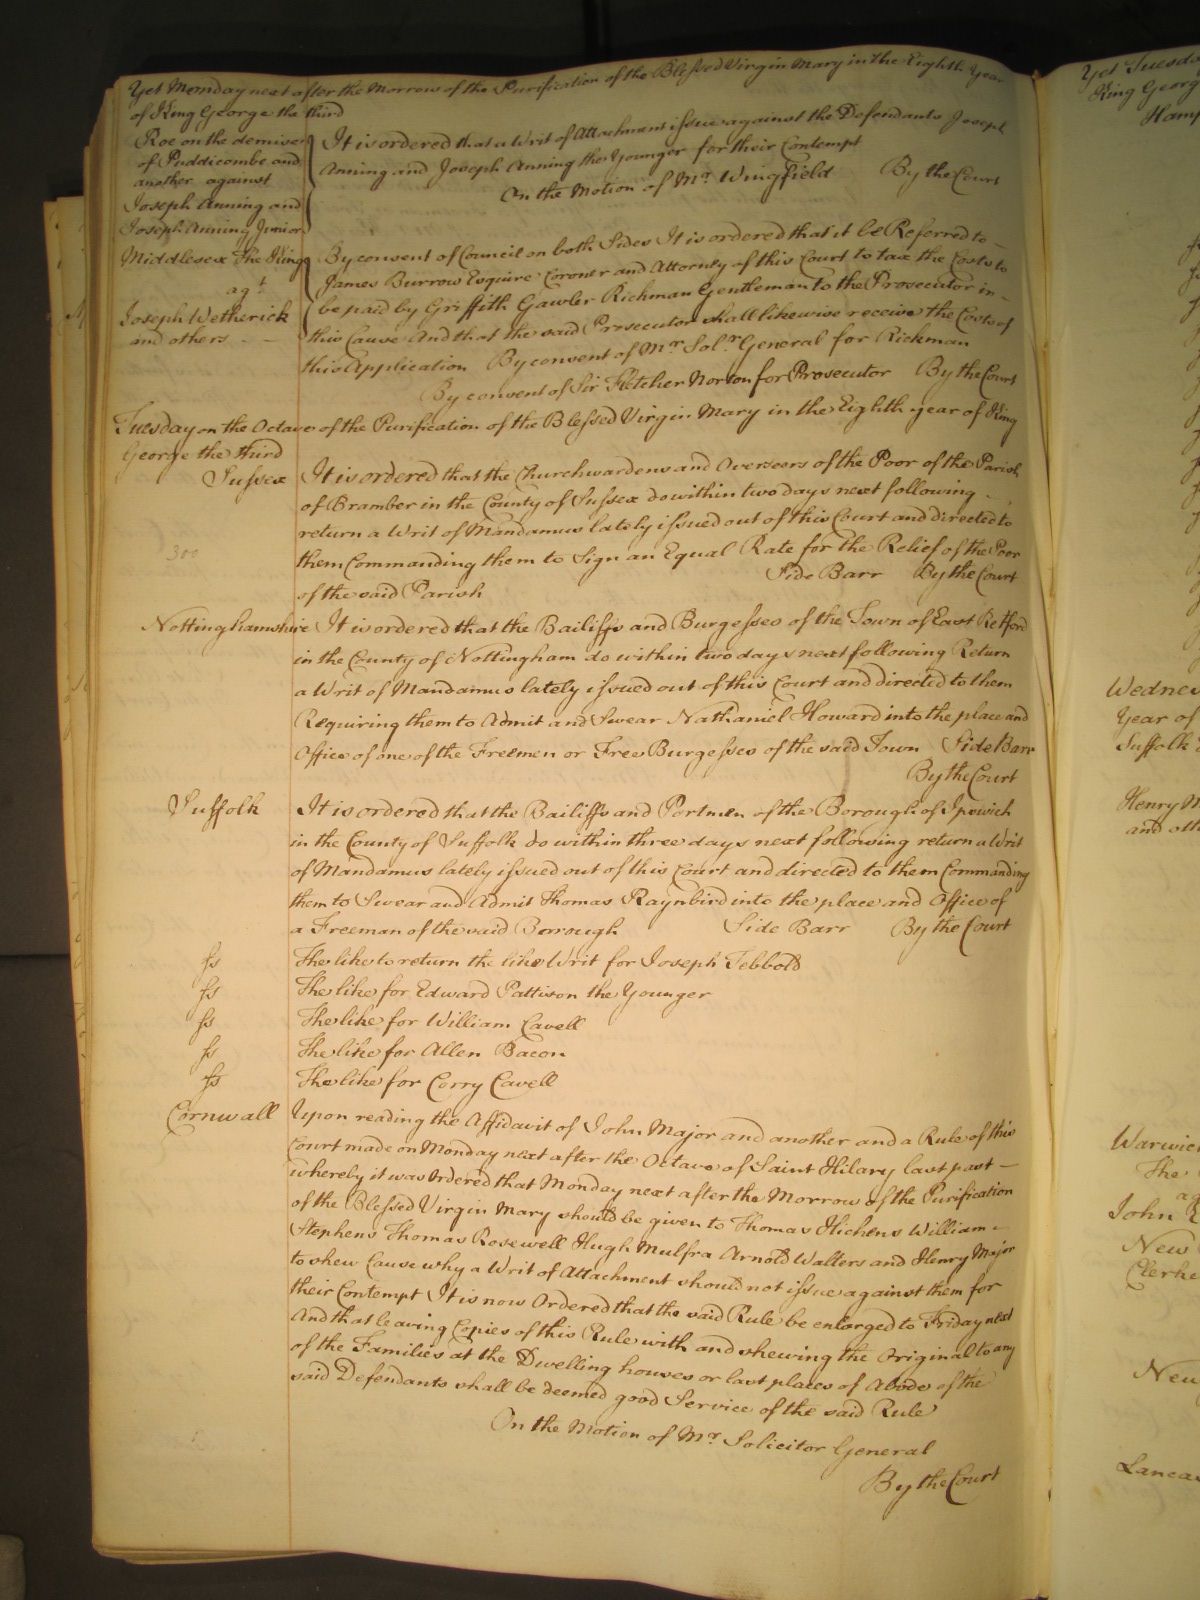 Yet Monday next after the Morrow of the Purification of the Blessed Virgin Mary in the Eighth Year
of King George the third
Roe on the demise
of Puddicombe and
another against
Joseph Anning and
Joseph Anning Junior
It is ordered that a Writ of Attachment issue against the Defendants Joseph
Anning and Joseph Anning the Younger for their Contempt
On the Motion of Mr. Wingfield By the Court
Middlesex The King
agt.
Joseph Wetherick
and others
By consent of Council on both Sides It is ordered that it be Referred to
James Burrow Esquire Coroner and Attorney of this Court to tax the Costs to
be paid by Griffith Gawler Rickman Gentleman to the Prosecutor in
this Cause And that the said Prosecutor shall likewise receive the Costs of
this Application By consent of Mr. Solr. General for Rickman
By consent of Sir Fletcher Norton for Prosecutor By the Court
Tuesday on the Octave of the Purification of the Blessed Virgin Mary in the Eighth year of King
George the third
Sussex It is ordered that the Churchwardens and Overseers of the Poor of the Parish
of Bramber in the County of Sussex do within two days next following
return a Writ of Mandamus lately issued out of this Court and directed to
300
them Commanding them to Sign an Equal Rate for the Relief of the Poor
of the said Parish Side Barr By the Court
Nottinghamshire It is ordered that the Bailiffs and Burgesses of the Town of East Retford
in the County of Nottingham do within two days next following Return
a Writ of Mandamus lately issued out of this Court and directed to them
Requiring them to Admit and Swear Nathaniel Howard into the place and
Office of one of the Freemen or Free Burgesses of the said Town Side Barr
By the Court
Suffolk It is ordered that the Bailiffs and Portmen of the Borough of Ipswich
in the County of Suffolk do within three days next following return a Writ
of Mandamus lately issued out of this Court and directed to them Commanding
them to Swear and Admit Thomas Raynbird into the place and Office of
a Freeman of the said Borrough Side Barr By the Court
ss The like to return the like Writ for Joseph Tebbold
ss The like for Edward Pattison the Younger
ss The like for William Cavell
ss The like for Allen Bacon
ss The like for Corry Cavell
Cornwall Upon reading the Affidavit of John Major and another and a Rule of this
Court made on Monday next after the Octave of Saint Hilary last past
whereby it was Ordered that Monday next after the Morrow of the Purification
of the Blessed Virgin Mary should be given to Thomas Hichens William
Stephens Thomas Rosewell Hugh Mulfra Arnold Walters and Henry Major
to shew Cause why a Writ of Attachment should not issue against them for
their Contempt It is now Ordered that the said Rule be enlarged to Friday next
And that leaving Copies of this Rule with and shewing the Original to any
of the Families at the Dwelling houses or last places of Abode of the
said Defendants shall be deemed good Service of the said Rule
On the Motion of Mr. Solicitor General
By the Court
Yet Tuesda
King Georg
Hamp
Wednes
Year of
Suffolk
Henry
and oth
Warwic
The
ag
John
New
Clerke
New
Lancas